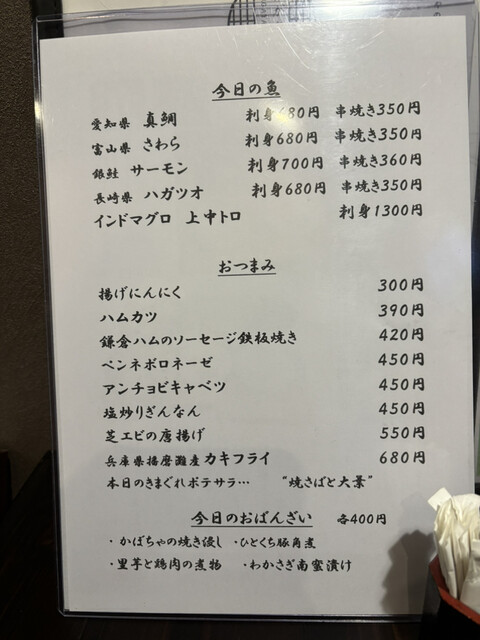 今日の魚
愛知県 真鯛 刺身680円 串焼き350円
富山県 さわら 刺身680円 串焼き350円
銀鮭 サーモン 刺身700円 串焼き360円
長崎県 ハガツオ 刺身680円 串焼き350円
インドマグロ 上中トロ 刺身1300円
おつまみ
揚げにんにく 300円
ハムカツ 390円
鎌倉ハムのソーセージ鉄板焼き 420円
ペンネボロネーゼ 450円
アンチョビキャベツ 450円
塩炒りぎんなん 450円
芝エビの唐揚げ 550円
兵庫県播磨灘産 カキフライ 680円
本日のきまぐれポテサラ… "焼さばと大葉"
今日のおばんざい 各400円
・かぼちゃの焼き浸し ・ひとくち豚角煮
・里芋と鶏肉の煮物 ・わかさぎ南蛮漬け